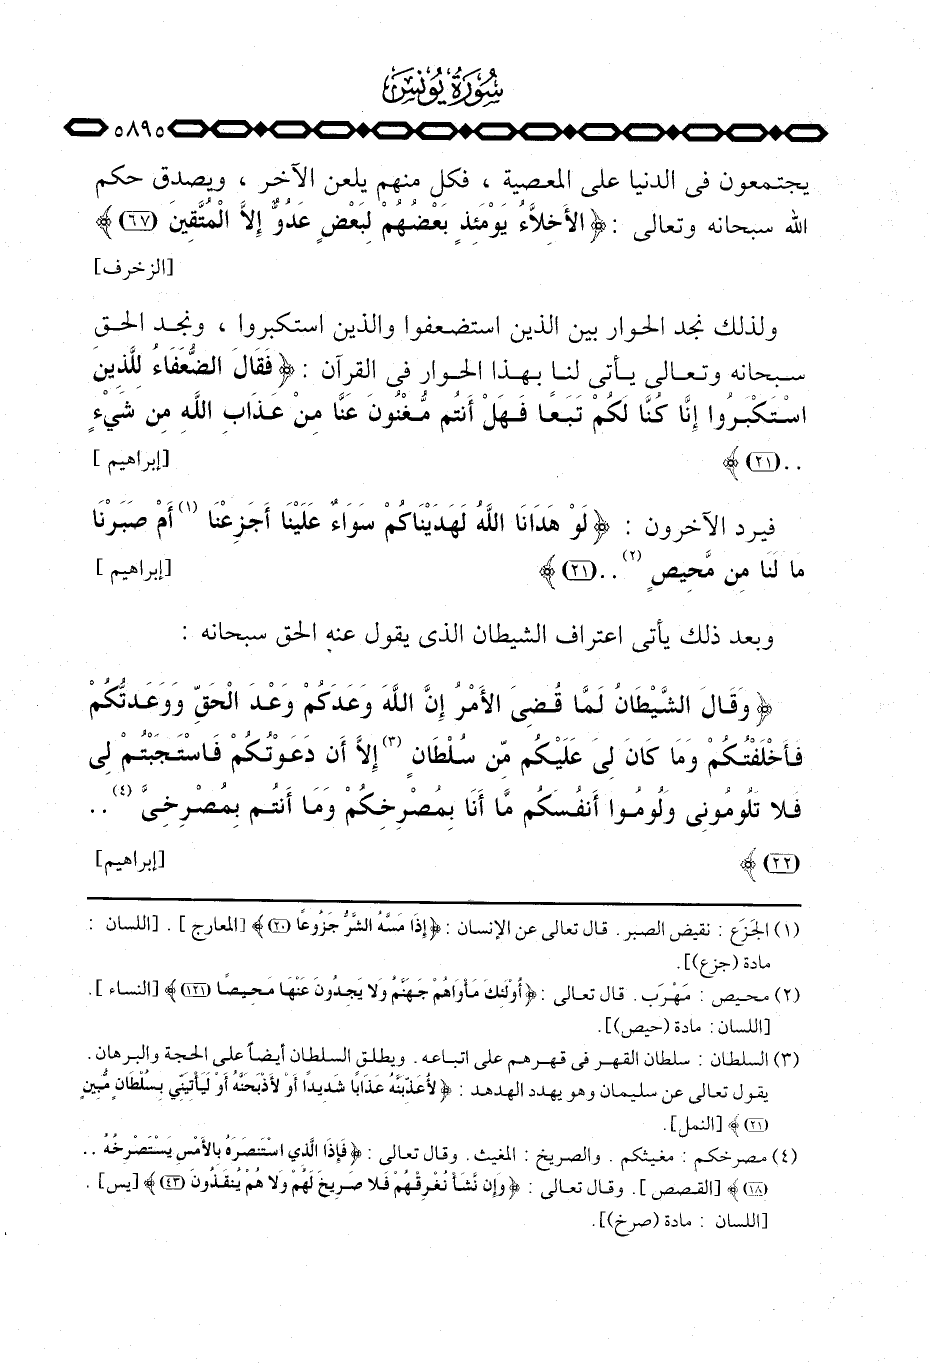 سُورَةُ يُونُسَ
٥٨٩٥
يجتمعون فى الدنيا على المعصية ، فكل منهم يلعن الآخر ، ويصدق حكم
الله سبحانه وتعالى : ﴿ الأَخِلاَّءُ يَوْمَئِذٍ بَعْضُهُمْ لِبَعْضٍ عَدُوٌّ إِلاَّ الْمُتَّقِينَ (٦٧) ﴾
[الزخرف]
ولذلك نجد الحوار بين الذين استضعفوا والذين استكبروا ، ونجد الحق
سبحانه وتعالى يأتى لنا بهذا الحوار فى القرآن : ﴿ فَقَالَ الضُّعَفَاءُ لِلَّذِينَ
اسْتَكْبَرُوا إِنَّا كُنَّا لَكُمْ تَبَعًا فَهَلْ أَنتُم مُّغْنُونَ عَنَّا مِنْ عَذَابِ اللَّهِ مِن شَيْءٍ
.. (٢١) ﴾ [إبراهيم ]
فيرد الآخرون : ﴿ لَوْ هَدَانَا اللَّهُ لَهَدَيْنَاكُمْ سَوَاءٌ عَلَيْنَا أَجَزِعْنَا (١) أَمْ صَبَرْنَا
مَا لَنَا مِن مَّحِيصٍ (٢) .. (٢١) ﴾ [إبراهيم ]
وبعد ذلك يأتى اعتراف الشيطان الذى يقول عنه الحق سبحانه :
﴿ وَقَالَ الشَّيْطَانُ لَمَّا قُضِيَ الأَمْرُ إِنَّ اللَّهَ وَعَدَكُمْ وَعْدَ الْحَقِّ وَوَعَدتُّكُمْ
فَأَخْلَفْتُكُمْ وَمَا كَانَ لِيَ عَلَيْكُم مِّن سُلْطَانٍ (٣) إِلاَّ أَن دَعَوْتُكُمْ فَاسْتَجَبْتُمْ لِي
فَلا تَلُومُونِي وَلُومُوا أَنفُسَكُم مَّا أَنَا بِمُصْرِخِكُمْ وَمَا أَنتُم بِمُصْرِخِيَّ (٤) ..
(٢٢) ﴾ [إبراهيم]
(١) الجَزَع : نقيض الصبر . قال تعالى عن الإنسان : ﴿ إِذَا مَسَّهُ الشَّرُّ جَزُوعًا (٢٠) ﴾ [المعارج ] . [اللسان :
مادة (جزع)].
(٢) محيص : مَهْرَب . قال تعالى : ﴿ أُولَئِكَ مَأْوَاهُمْ جَهَنَّمُ وَلا يَجِدُونَ عَنْهَا مَحِيصًا (١٢١) ﴾ [النساء ].
[اللسان : مادة (حيص)].
(٣) السلطان : سلطان القهر فى قهرهم على اتباعه . ويطلق السلطان أيضاً على الحجة والبرهان .
يقول تعالى عن سليمان وهو يهدد الهدهد : ﴿ لأُعَذِّبَنَّهُ عَذَابًا شَدِيدًا أَوْ لأَذْبَحَنَّهُ أَوْ لَيَأْتِيَنِّي بِسُلْطَانٍ مُّبِينٍ
(٢١) ﴾ [النمل].
(٤) مصرخكم : مغيثكم . والصريخ : المغيث . وقال تعالى : ﴿ فَإِذَا الَّذِي اسْتَنصَرَهُ بِالأَمْسِ يَسْتَصْرِخُهُ ..
(١٨) ﴾ [القصص ]. وقال تعالى : ﴿ وَإِن نَّشَأْ نُغْرِقْهُمْ فَلا صَرِيخَ لَهُمْ وَلا هُمْ يُنقَذُونَ (٤٣) ﴾ [يس] .
[اللسان : مادة (صرخ)].